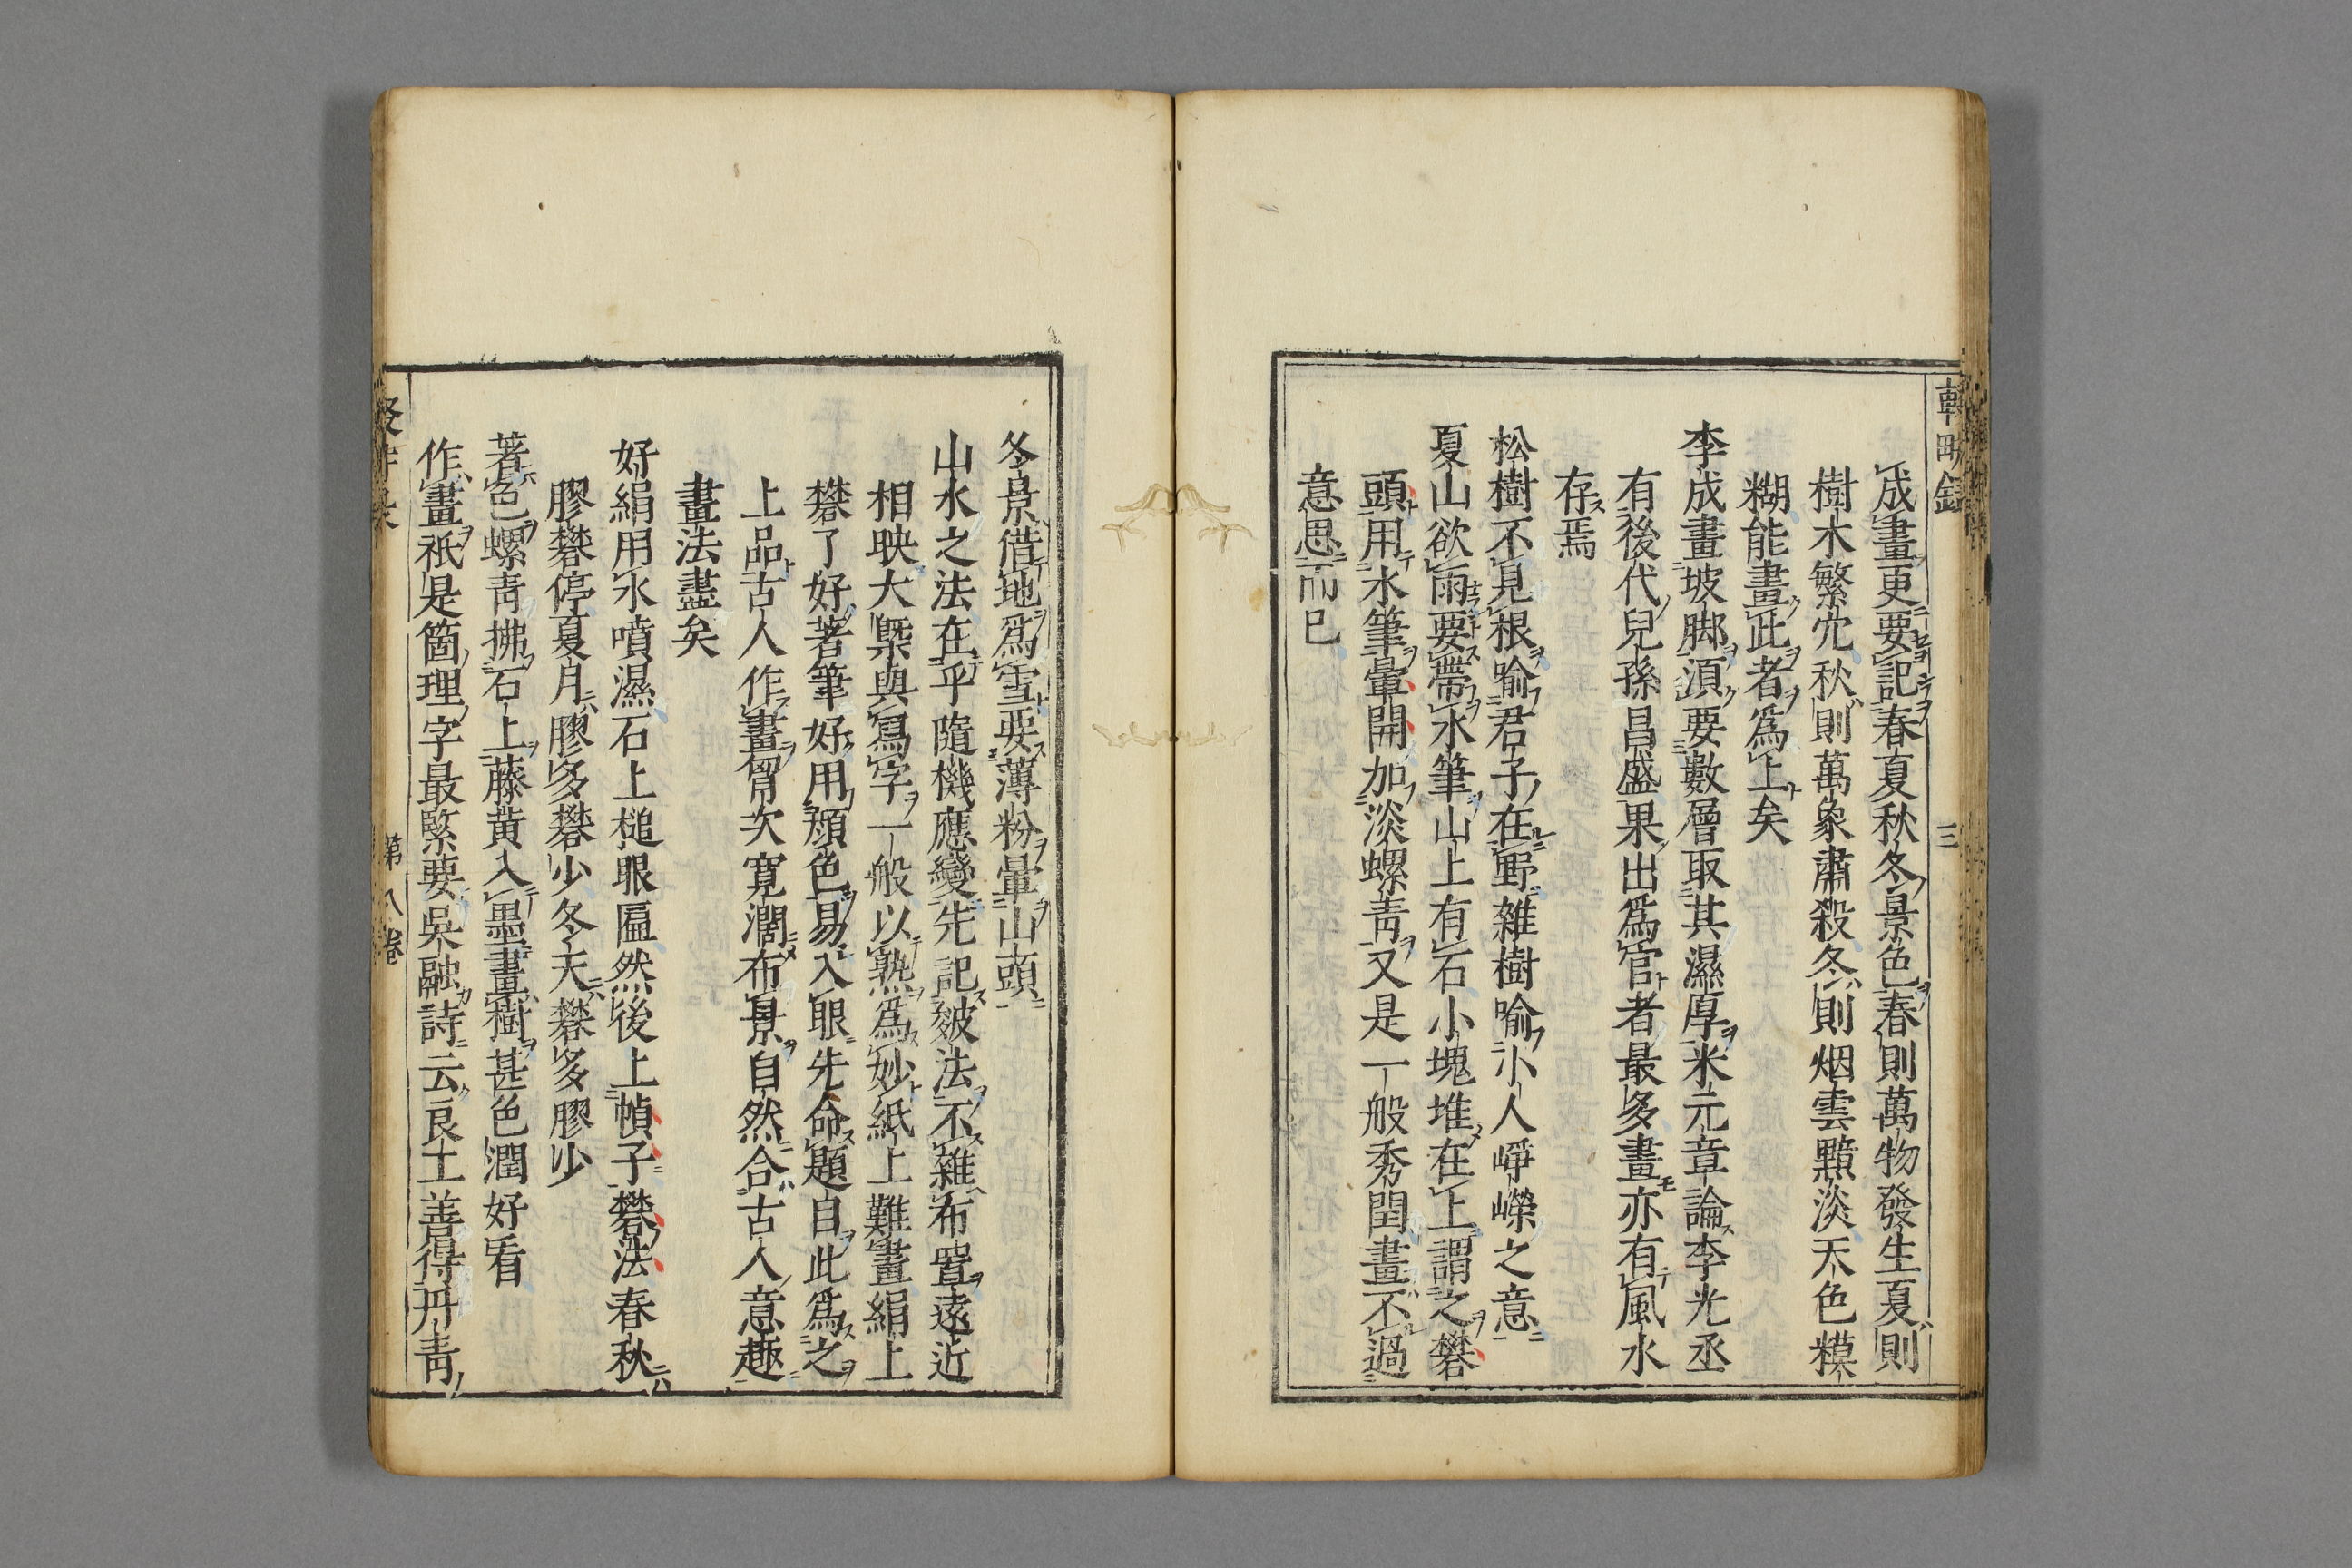 成畫更要記春夏秋冬景色春則萬物發生夏則
樹木繁宂秋則萬象肅殺冬則烟雲黯淡天色糢
糊能畫此者爲上矣
李成畫坡脚須要數層取其濕厚米元章論李光丞
有後代兒孫昌盛果出爲官者最多畫亦有風水
存焉
松樹不見根喻君子在野雜樹喻小人崢嶸之意
夏山欲雨要帶水筆山上有石小塊堆在上謂之礬
頭用水筆暈開加淡螺靑又是一般秀閏畫不過
意思而已
冬景借地爲雪要薄粉暈山頭
山水之法在乎隨機應變先記皴法不雜布置遠近
相映大槩與寫字一般以熟爲妙紙上難畫絹上
礬了好著筆好用顔色易入眼先命題自此爲之
上品古人作畫胷次寬濶布景自然合古人意趣
畫法盡矣
好絹用水噴濕石上槌眼匾然後上幀子礬法春秋
膠礬停夏月膠多礬少冬天礬多膠少
著色螺靑拂石上藤黄入墨畫樹甚色潤好看
作畫祇是箇理字最緊要吳融詩云良工善得丹靑
第八卷